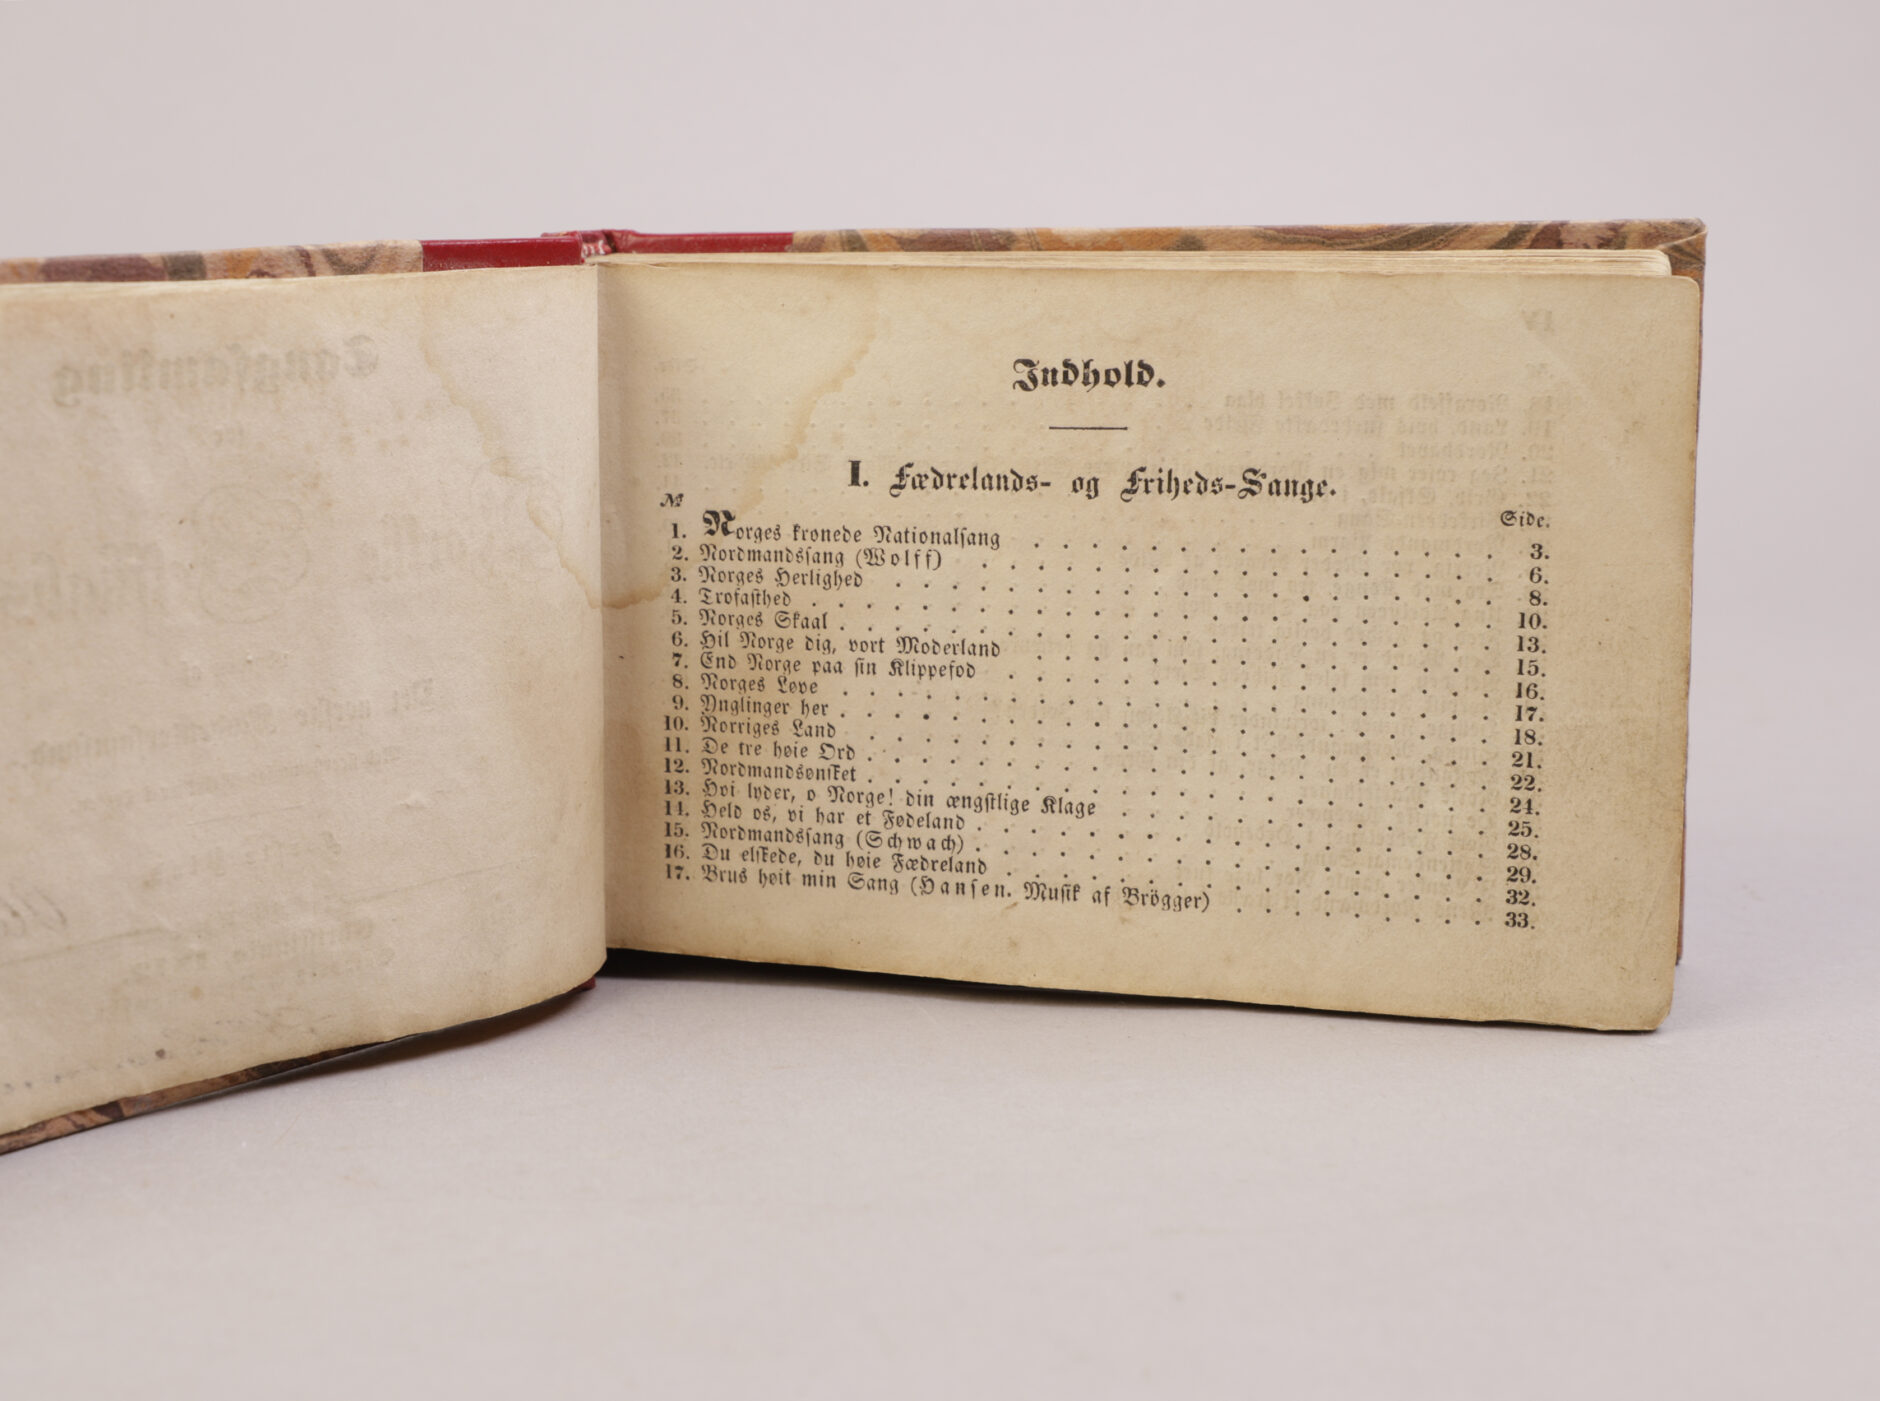 Sangsamling
Indhold.
I. Fædrelands- og Friheds-Sange.
№ Side.
1. Norges kronede Nationalsang . . . . . . . . . . . . . . . . 3.
2. Nordmandssang (Wolff) . . . . . . . . . . . . . . . . . . 6.
3. Norges Herlighed . . . . . . . . . . . . . . . . . . . . . 8.
4. Trofasthed . . . . . . . . . . . . . . . . . . . . . . . . 10.
5. Norges Skaal . . . . . . . . . . . . . . . . . . . . . . . 13.
6. Hil Norge dig, vort Moderland . . . . . . . . . . . . . . . . 15.
7. End Norge paa sin Klippefod . . . . . . . . . . . . . . . . . 16.
8. Norges Løve . . . . . . . . . . . . . . . . . . . . . . . 17.
9. Ynglinger her . . . . . . . . . . . . . . . . . . . . . . . 18.
10. Norriges Land . . . . . . . . . . . . . . . . . . . . . . 21.
11. De tre høie Ord . . . . . . . . . . . . . . . . . . . . . . 22.
12. Nordmandsønsket . . . . . . . . . . . . . . . . . . . . . . 24.
13. Hvi lyder, o Norge! din ængstlige Klage . . . . . . . . . . . . . 25.
14. Held os, vi har et Fødeland . . . . . . . . . . . . . . . . . . 28.
15. Nordmandssang (Schwach) . . . . . . . . . . . . . . . . . . 29.
16. Du elskede, du høie Fædreland . . . . . . . . . . . . . . . . . 32.
17. Brus høit min Sang (Hansen. Musik af Brögger) . . . . . . . . . 33.